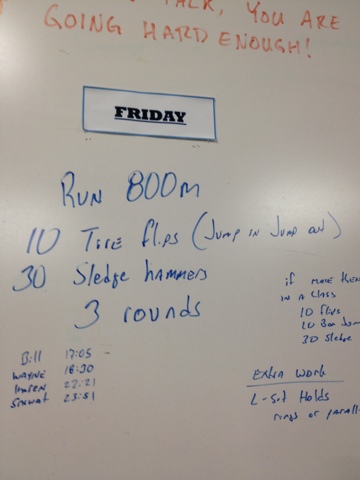 TALK, YOU ARE
GOING HARD ENOUGH!
FRIDAY
RUN 800m
10 Tire flips (Jump in Jump out)
30 Sledge hammers
3 rounds
if MORE then
in a class
10 flips
10 Box Jum
30 Sledge
Bill 17:05
WAYNE 18:30
22:21
23:51
EXTRA WORK
L-Sit Holds
rings or parall